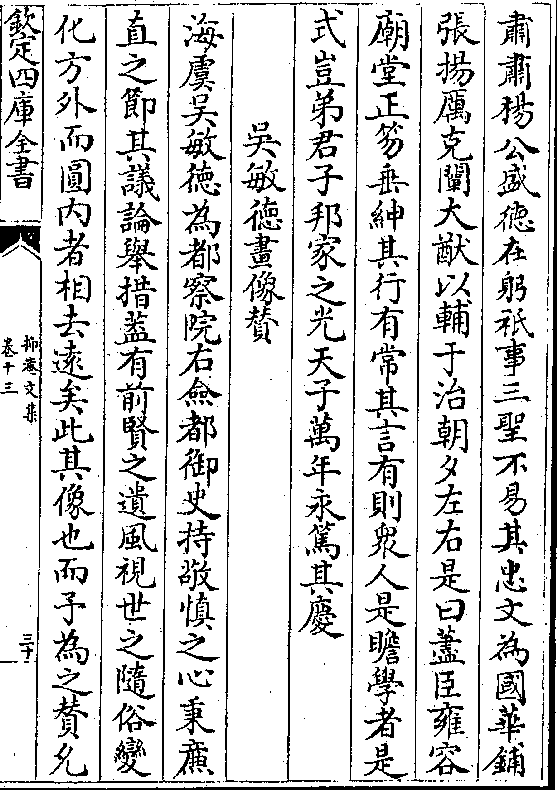 肅肅楊公盛德在躬祗事三聖不易其忠文為國華鋪
張揚厲克闡大猷以輔于治朝夕左右是曰藎臣雍容
廟堂正笏垂紳其行有常其言有則衆人是瞻學者是
式豈弟君子邦家之光天子萬年永篤其慶
吳敏德畫像賛
海虞吳敏德為都察院右僉都御史持敬慎之心秉亷
直之節其議論舉措葢有前賢之遺風視世之隨俗變
化方外而圓内者相去遠矣此其像也而予為之賛允
欽定四庫全書
抑菴文集
卷十三
三十